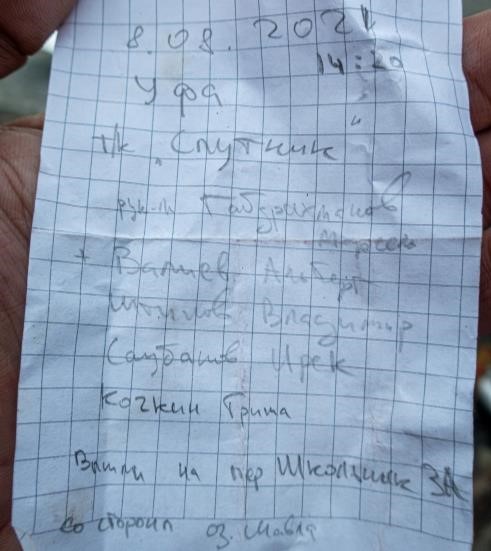 8.08.2021
14:20
Уфа
т/к "Спутник"
рук-ль Габдрахманов
+ Валиев Альберт
Владимир
Саубанов Ирек
Кочкин Гриша
Вышли на пер Школьник 3А
со стороны оз.